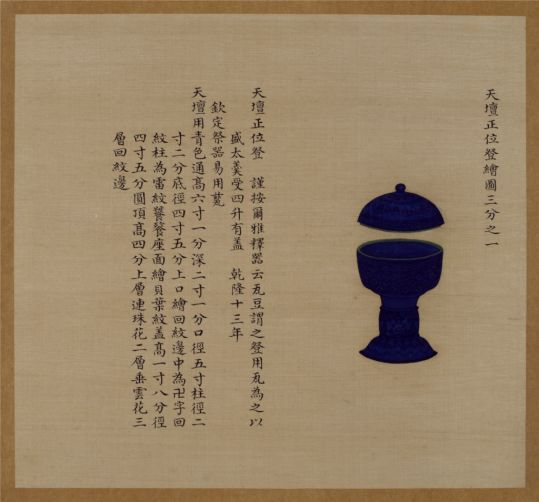 天壇正位登繪圖三分之一
天壇正位登　謹按爾雅釋器云瓦豆謂之登用瓦為之以
盛太羹受四升有蓋　乾隆十三年
欽定祭器易用甆
天壇用青色通高六寸一分深二寸一分口徑五寸柱徑二
寸二分底徑四寸五分上口繪回紋邊中為卍字回
紋柱為雷紋饕餮座面繪貝葉紋蓋高一寸八分徑
四寸五分圓頂高四分上層連珠花二層垂雲花三
層回紋邊